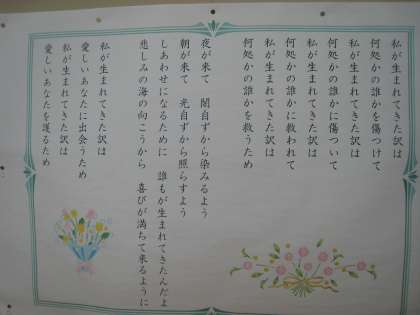 私が生まれてきた訳は
何処かの誰かを傷つけて
私が生まれてきた訳は
何処かの誰かに傷ついて
私が生まれてきた訳は
何処かの誰かに救われて
私が生まれてきた訳は
何処かの誰かを救うため
夜が来て 闇自ずから染みるよう
朝が来て 光自ずから照らすよう
しあわせになるために 誰もが生まれてきたんだよ
悲しみの海の向こうから 喜びが満ちて来るように
私が生まれてきた訳は
愛しいあなたに出会うため
私が生まれてきた訳は
愛しいあなたを護るため